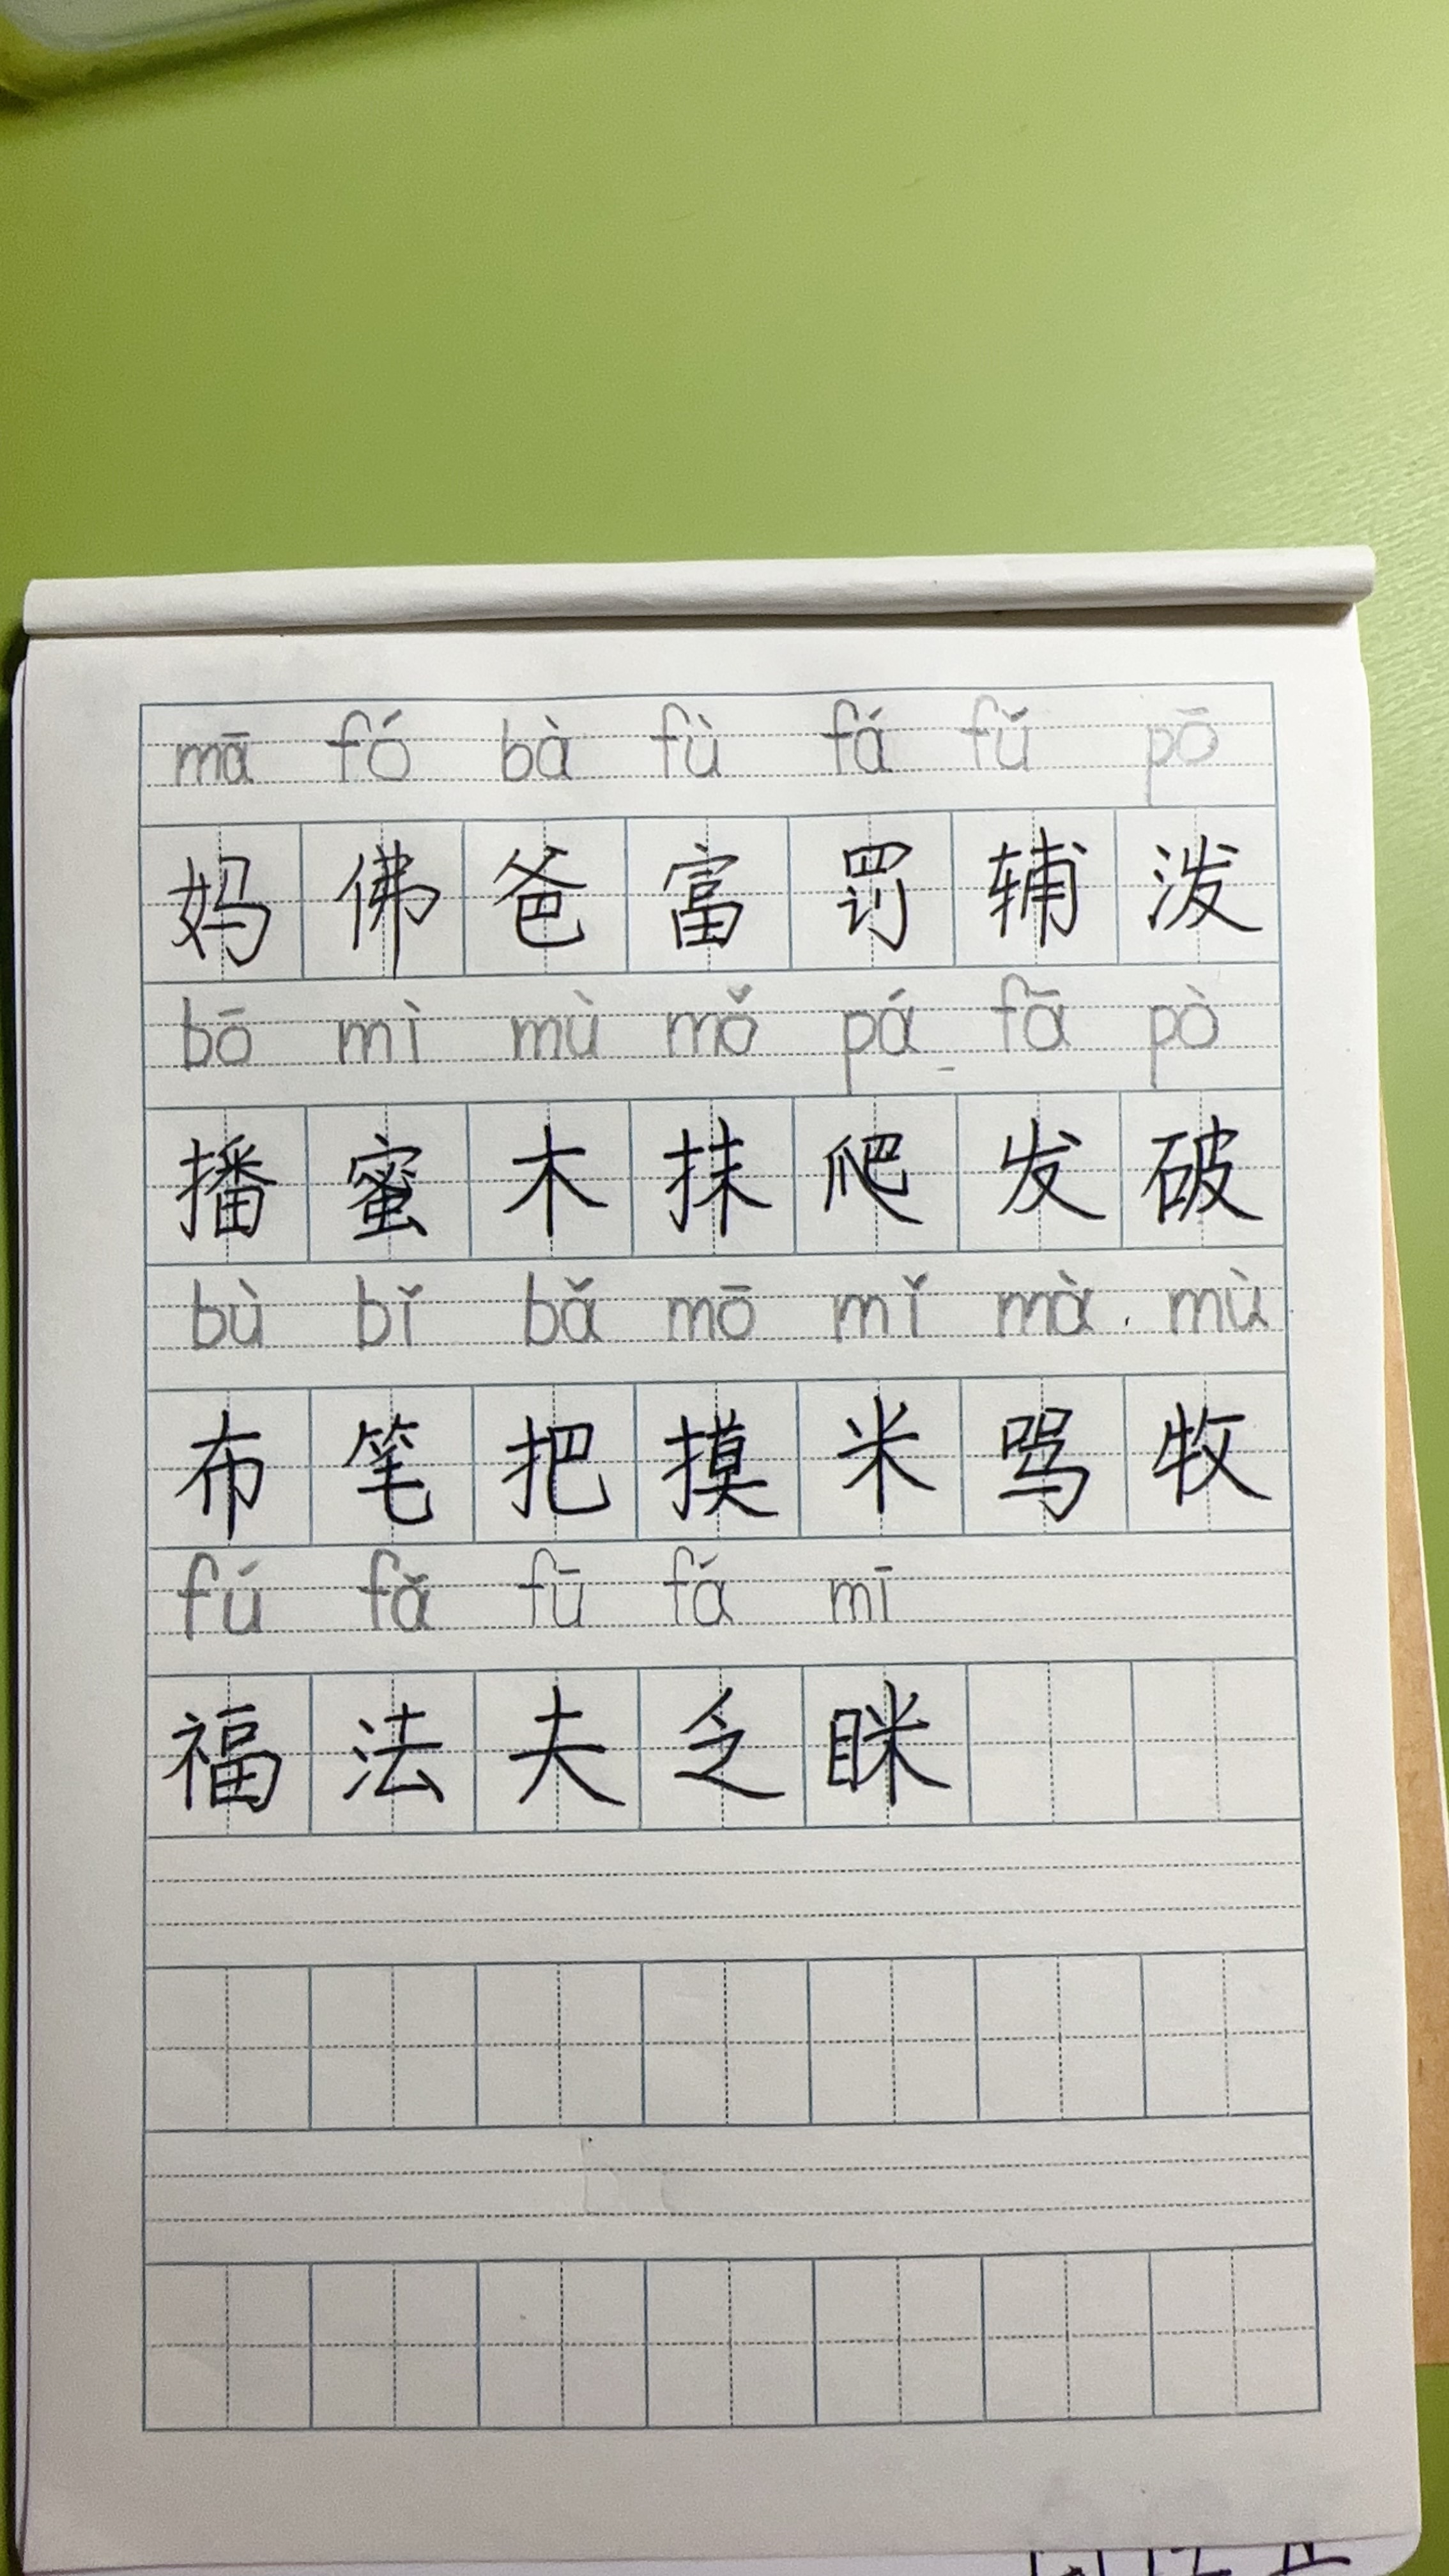 mā fó bà fù fá fǔ pō
妈 佛 爸 富 罚 辅 泼
bō mì mù mǒ pá fā pò
播 蜜 木 抹 爬 发 破
bù bǐ bǎ mō mǐ mà mù
布 笔 把 摸 米 骂 牧
fú fǎ fū fá mī
福 法 夫 乏 眯